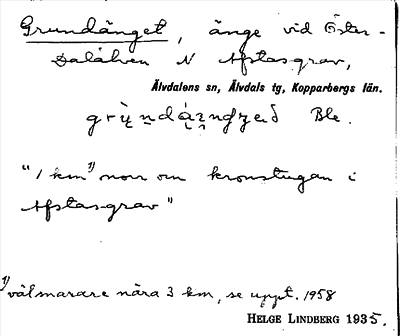 Grundänget, änge vid Öster-
Dalälven N Åfstasgrav,
Älvdalens sn, Älvdals tg, Kopparbergs län.
Ble.
"1 km 1) norr om kronstugan i
Åfstasgrav"
1) välmarare nära 3 km, se uppt. 1958
HELGE LINDBERG 1935.